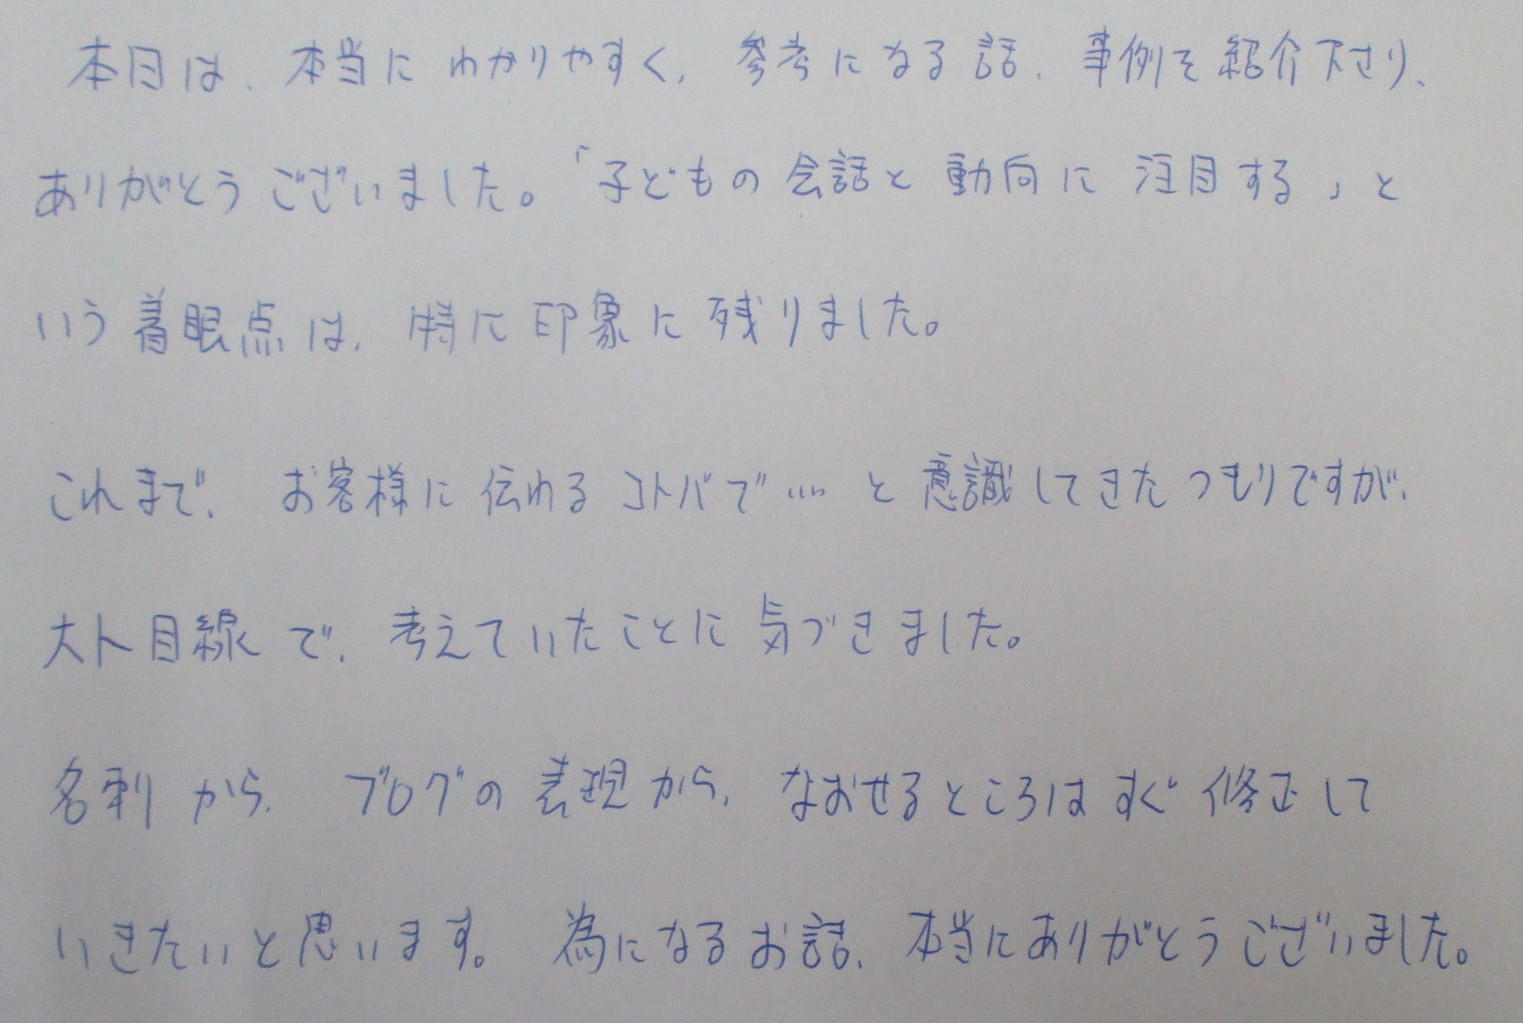 本日は、本当にわかりやすく、参考になる話、事例を紹介下さり、
ありがとうございました。「子どもの会話と動向に注目する」と
いう着眼点は、特に印象に残りました。
これまで、お客様に伝わるコトバで…と意識してきたつもりですが、
大ト目線で、考えていたことに気づきました。
名刺から、ブログの表現から、なおせるところはすぐ修正して
いきたいと思います。為になるお話、本当にありがとうございました。